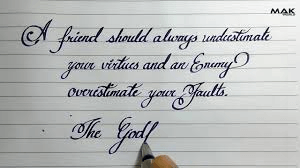 MAK
A friend should always undestimate
your virtues and an Enemy
overestimate your Faults.
The Godf